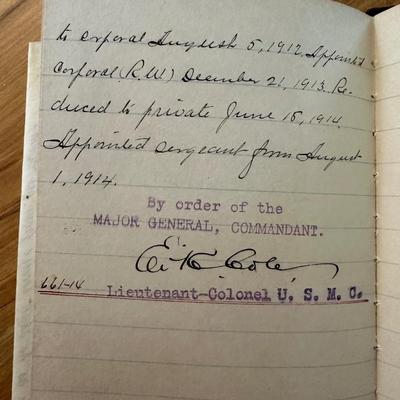 to corporal August 5, 1912. Appointed
Corporal (R.W.) December 21, 1913. Re-
duced to private June 15, 1914.
Appointed sergeant from August
1, 1914.
By order of the
MAJOR GENERAL, COMMANDANT.
E. K. Cole,
661-14 Lieutenant-Colonel U. S. M. C.